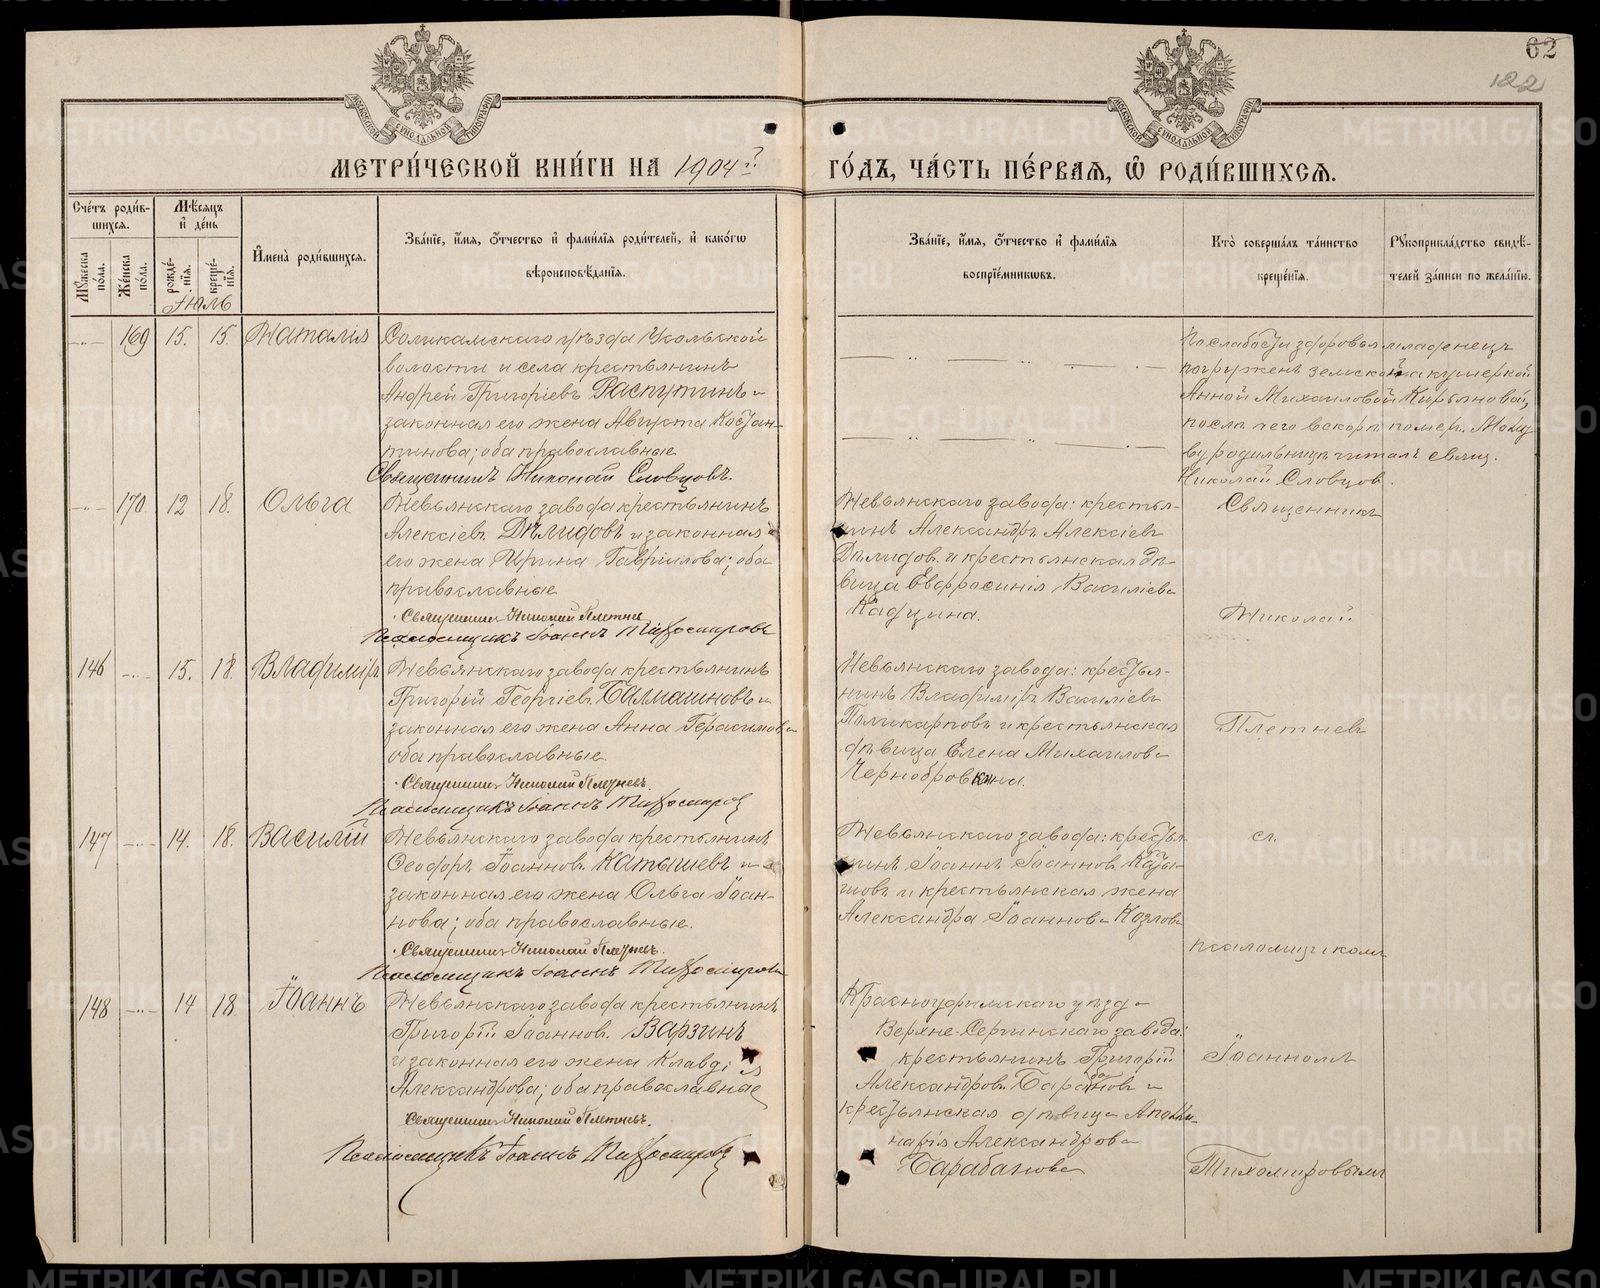 62
122
МЕТРИ́ЧЕСКОЙ КНИ́ГИ НА 1904 й ГО́ДЪ, ЧА́СТЬ ПЕ́РВАѦ, Ѡ҆ РОДИ́ВШИХСѦ.
Сче́тъ роди́в-
шихся.
Мѣ́сяцъ
и҆ де́нь
Мꙋ́жеска по́ла.
Же́нска по́ла.
рожде́-
нїя.
креще́-
нїя.
И҆мена̀ роди́вшихся.
Зва́нїе, и҆́мя, ѻ҆́тчество и҆ фами́лїя роди́телей, и҆ како́гѡ
вѣроисповѣ́данїя.
Зва́нїе, и҆́мя, ѻ҆́тчество и҆ фами́лїя
воспрїе́мникѡвъ.
Кто̀ соверша́лъ та́инство
креще́нїя.
Рꙋкоприкла́дство свидѣ́-
телей за́писи по жела́нїю.
Іюль
169 15. 15. Наталія
Соликамскаго уѣзда Усольской
волости и села крестьянинъ
Андрей Григоріевъ Распутинъ и
законная его жена Августа Констан-
тинова; оба православные.
Священникъ Николай Словцовъ.
По слабости здоровья младенецъ
погруженъ земской акушеркой
Анной Михаиловой Кирьяновой,
послѣ чего вскорѣ помер. Молит
ву родильницѣ читалъ свящ.
Николай Словцов.
170 12 18. Ольга
Невьянскаго завода крестьянинъ
Алексіевъ Дѣмидовъ и законная
его жена Ирина Гавріилова; оба
православные
Священникъ Николай Плетневъ.
Псаломщикъ Іоаннъ Тихомировъ
Невьянскаго завода: крестья-
нинъ Александръ Алексіевъ
Дѣмидов. и крестьянская дѣ-
вица Евфросинія Василіева
Кадцина.
Священникъ
Николай
146 15. 18. Владиміръ
Невьянскаго завода крестьянинъ
Григорій Георгіевъ Балмашновъ и
законная его жена Анна Герасимова
оба православные.
Священникъ Николай Плетневъ.
Псаломщикъ Іоаннъ Тихомиров
Невьянскаго завода: крестья-
нинъ Владиміръ Василіевъ
Поликарповъ и крестьянская
дѣвица Елена Михаилова
Чернобровкина.
Плетневъ
147 14. 18. Василій
Невьянскаго завода крестьянинъ
Ѳеодоръ Іоаннов. Катышевъ и
законная его жена Ольга Іоан-
нова; оба православные.
Священникъ Николай Плетневъ.
Псаломщикъ Іоаннъ Тихомировъ
Невьянскаго завода: крестья
нинъ Іоаннъ Іоаннов. Каты-
шовъ и крестьянская жена
Александра Іоаннова Козлова
съ
псаломщикомъ
148 14 18. Іоаннъ
Невьянскаго завода крестьянинъ
Григорій Іоаннов. Варзинъ
и законная его жена Клавдія
Александрова; оба православные
Священникъ Николай Плетневъ.
Псаломщикъ Іоаннъ Тихомиров
Красноуфимскаго уѣзда
Верхне-Сергинскаго завода:
крестьянинъ Григорій
Александров. Барабановъ и
крестьянская дѣвица Аполли-
нарія Александрова
Барабанова
Іоанномъ
Тихомировымъ
METRIKI.GASO-URAL.RU